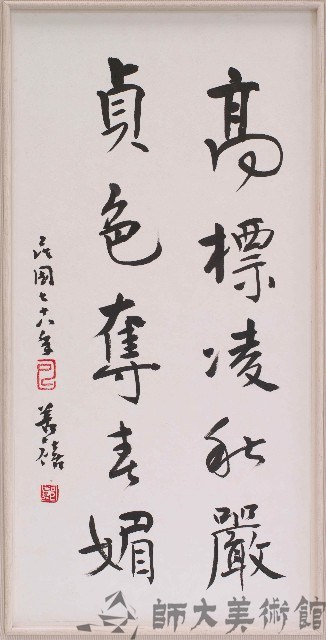 高標凌秋嚴
貞色奪春媚
民國七十八年 善禧
師大美術館